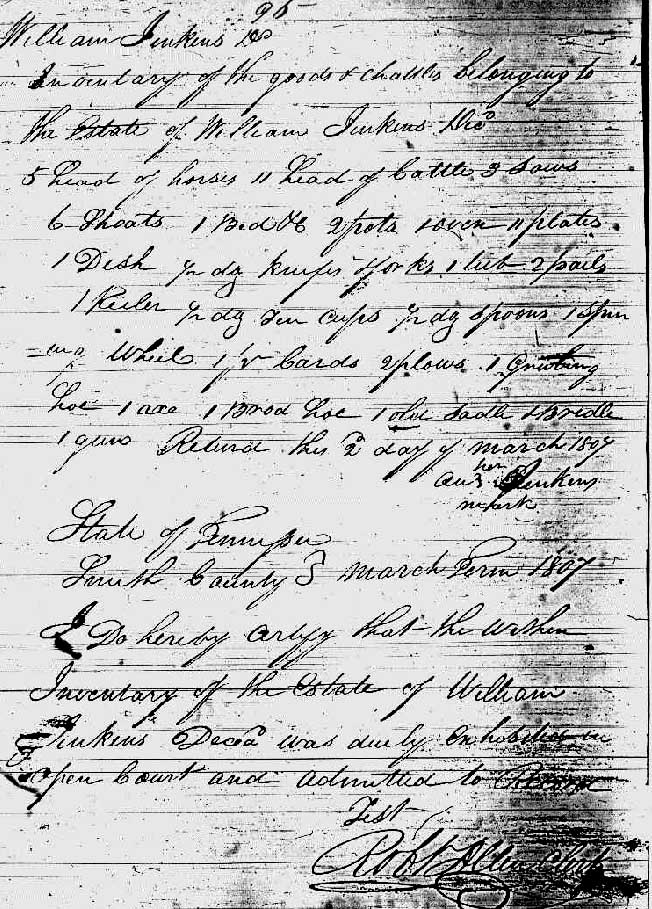 95
William Jinkens Dc
Inventary of the goods & chattles belonging to
the Estate of William Jinkens Decd
5 head of horses 11 head of Cattle 3 Sows
6 Shoats 1 Bed &c 2 pots 1 oven 11 plates
1 Dish ½ dz knifes & forks 1 tub 2 pails
1 Keeler ½ dz Tin cups ½ dz spoons 1 Spin
=ing Wheel 1 pr Cards 2 plows 1 Grubing
hoe 1 axe 1 Brod hoe 1 old Sadle & Bridle
1 gun Returnd this 2d day of March 1807
her
Jinkens
mark
State of Tennessee
Smith County } March Term 1807
I Do hereby certify that the within
Inventary of the Estate of William
Jinkens Decd was duly Exhibited in
open Court and admitted to Record
Test
Robt Allen Clerk